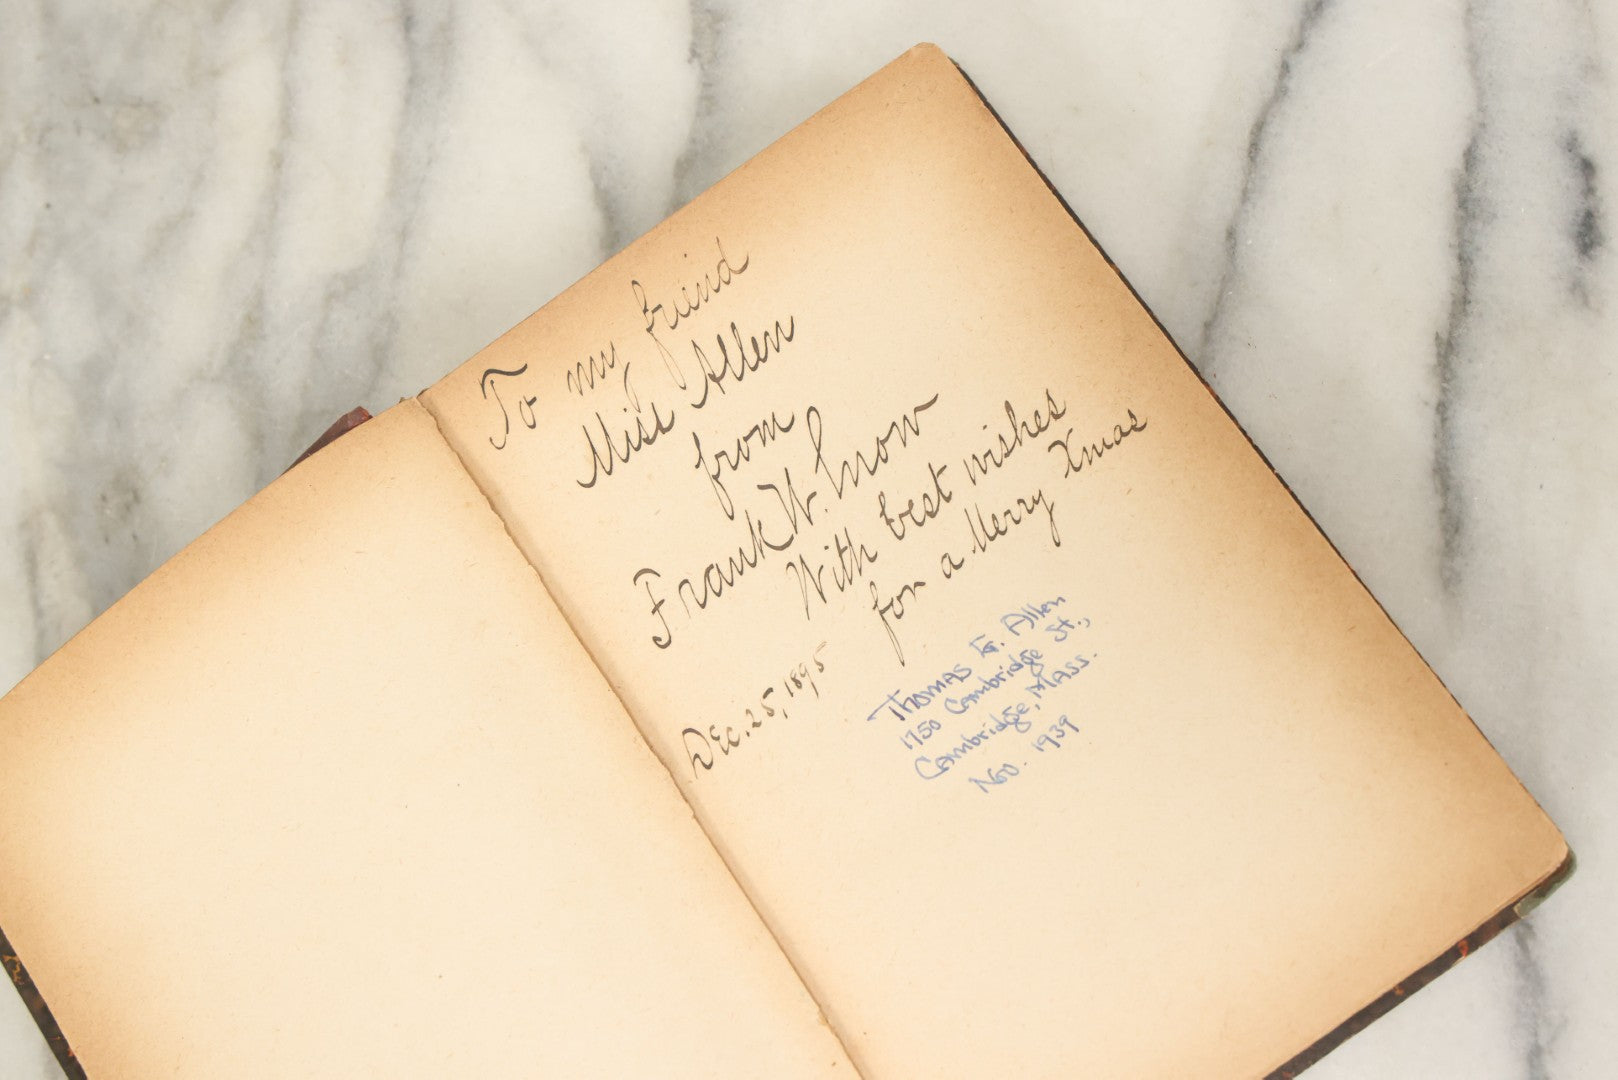 To my friend
Miss Allen
from
Frank W. Snow
With best wishes
for a Merry Xmas
Dec. 25, 1895
Thomas G. Allen
1750 Cambridge St.,
Cambridge, Mass.
Nov. 1939